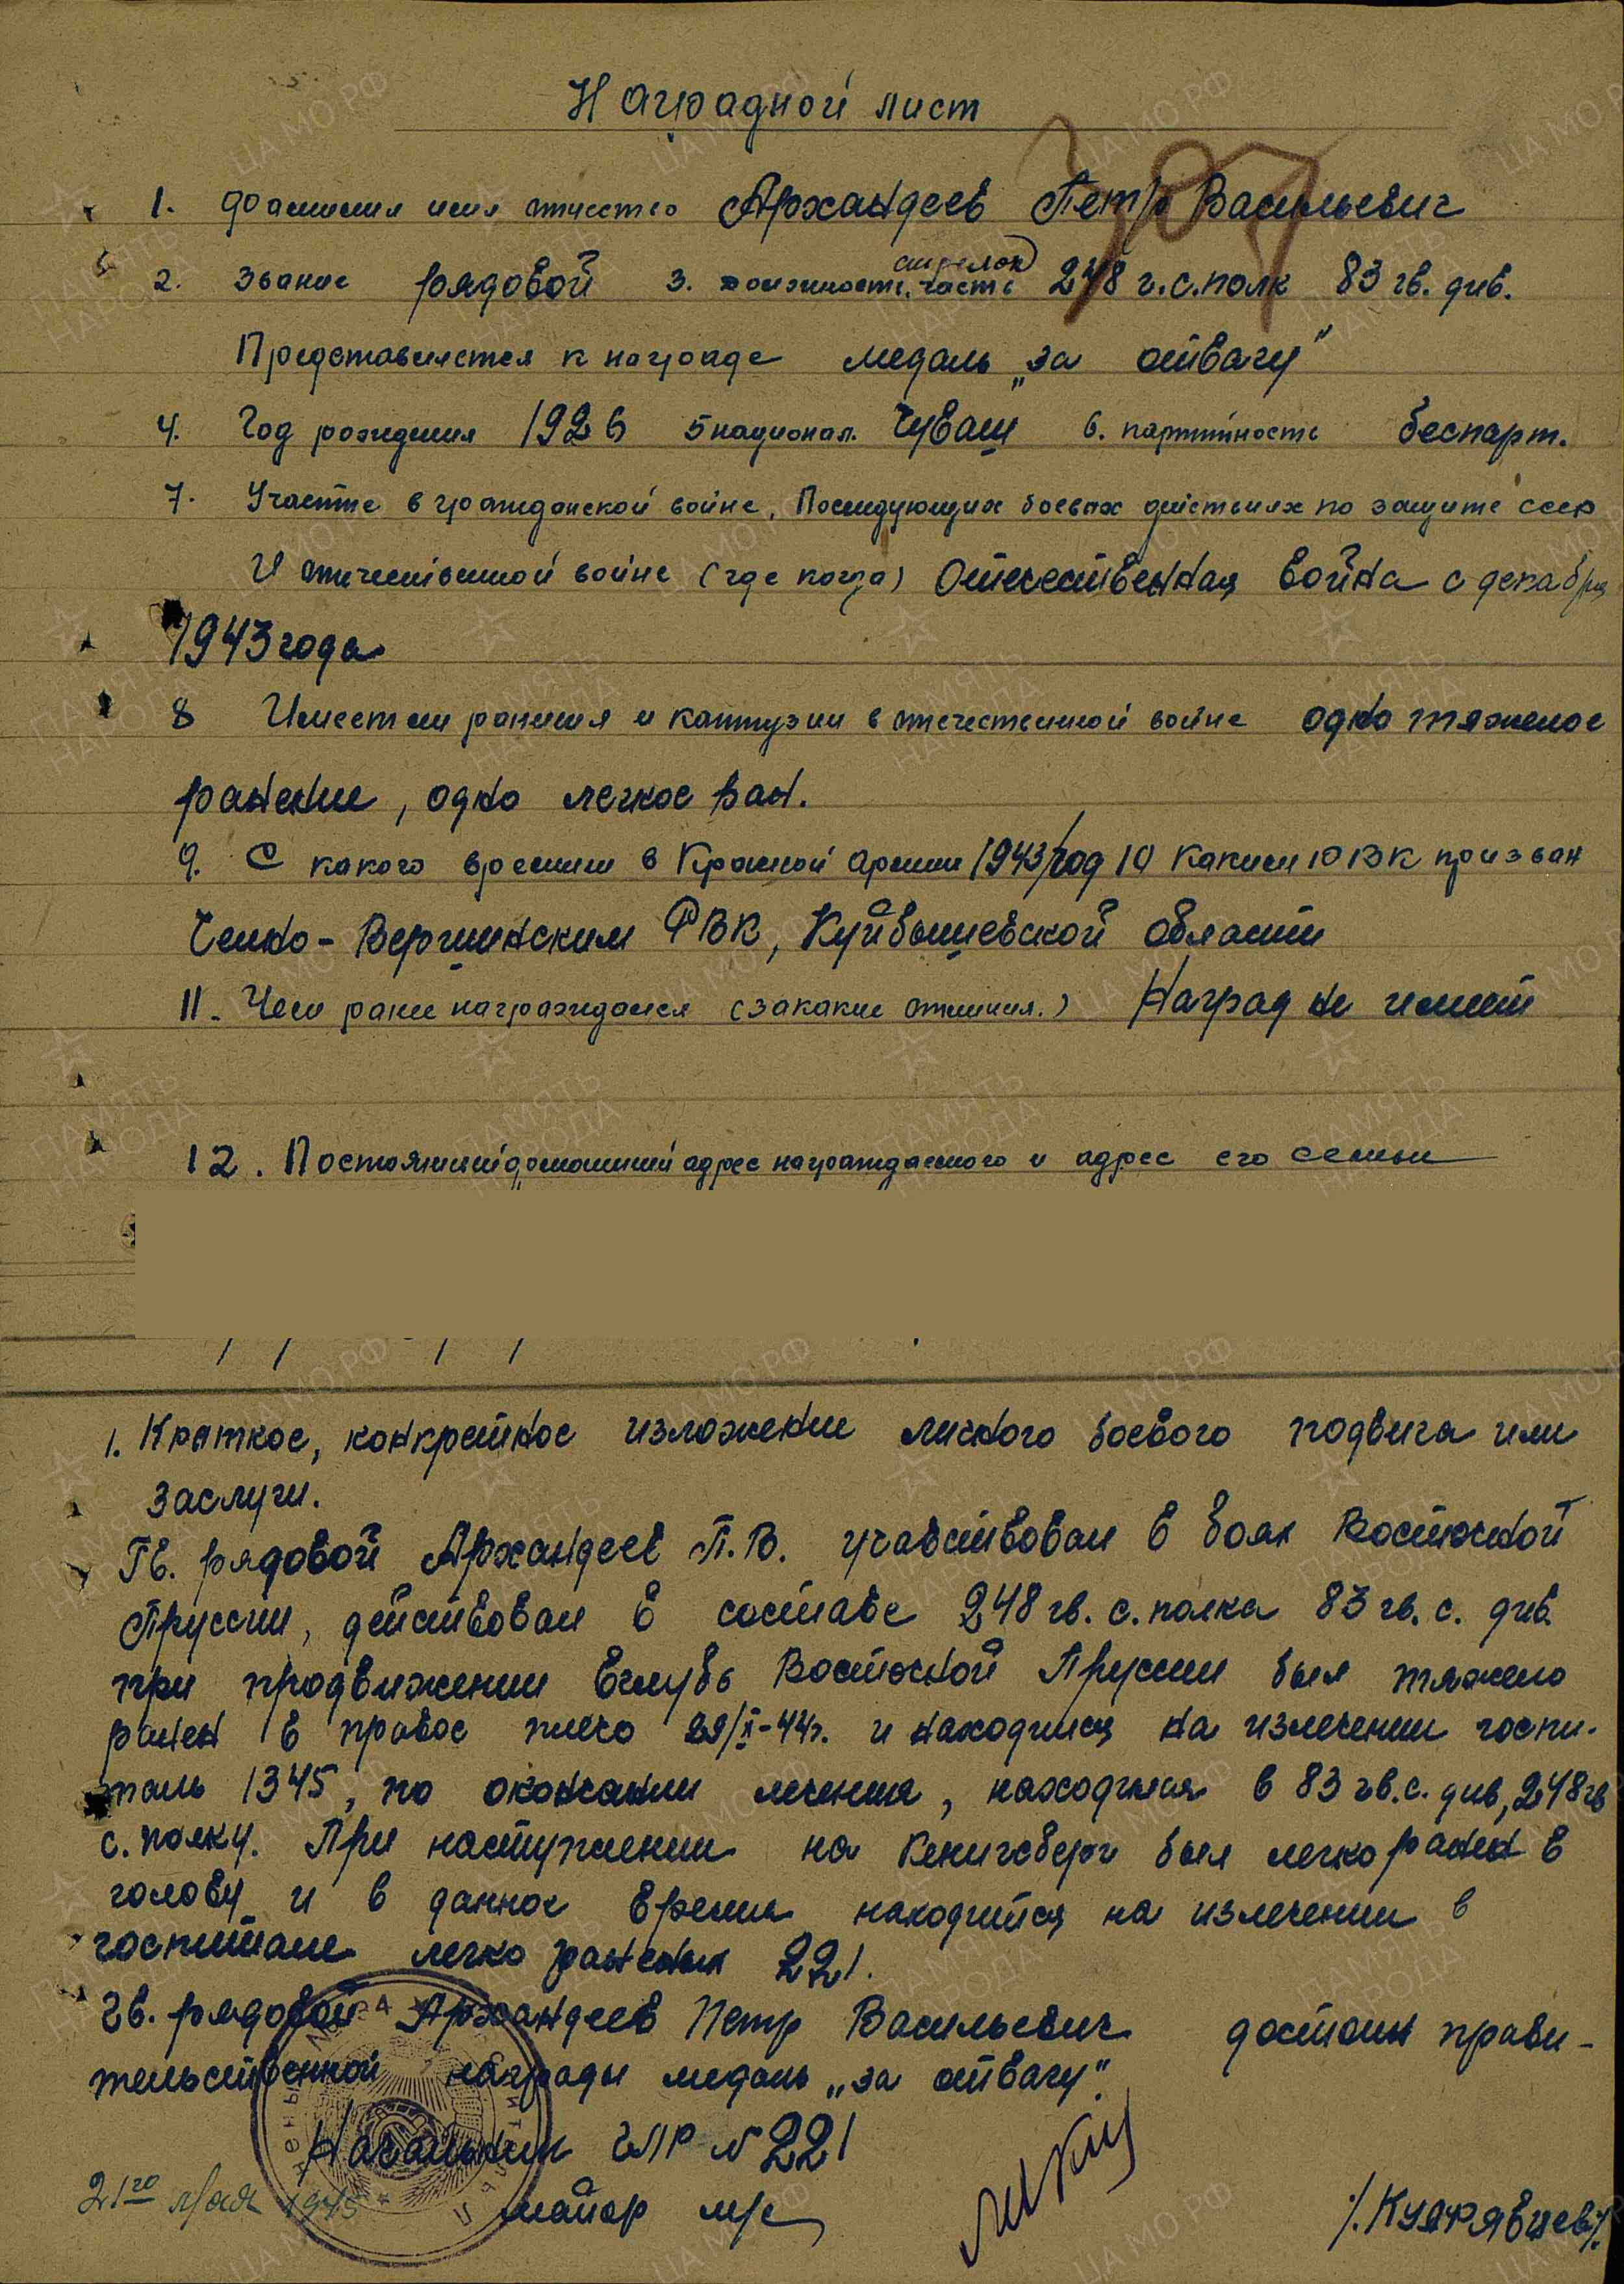 Наградной лист
1. Фамилия имя отчество Архандеев Петр Васильевич
2. Звание рядовой 3. должность, часть стрелок 248 г.с.полк 83 гв. див.
Представляется к награде медаль „за отвагу"
4. Год рождения 1926 5 национал. Чуваш 6. партийность беспарт.
7. Участие в гражданской войне, Последующих боевых действиях по защите СССР
И отечественной войне (где когда) Отечественная война с декабря
1943 года
8 Имеет ли ранения и контузии в отечественной войне одно тяжелое
ранение, одно легкое ран.
9. С какого времени в Красной армии 1943 год 10 Каким ЮВК призван
Челно-Вершинским РВК, Куйбышевской области
11. Чем ранее награждался (за какие отличия.) Наград не имеет
12. Постоянный домашний адрес награждаемого и адрес его семьи
1. Краткое, конкретное изложение личного боевого подвига или
заслуги.
Гв. рядовой Архандеев П.В. учавствовал в боях Восточной
Пруссии, действовал в составе 248 гв. с. полка 83 гв. с. див.
при продвижении вглубь Восточной Пруссии был тяжело
ранен в правое плечо и находился на излечении госпи-
таль 1345, по окончании лечения, находился в 83 гв.с. див, 248 гв
с. полку. При наступлении на Кенигсберг был легко ранен в
голову и в данное время находится на излечении в
госпитале легко раненых 221.
Гв. рядовой Архандеев Петр Васильевич достоин прави-
тельственной награды медаль „за отвагу".
Начальник ГЛР № 221
21го мая 1945 майор м/с /.Кудрявцев./